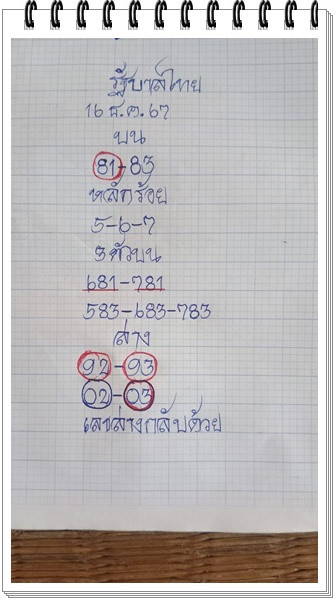 รัฐบาลไทย
16 ธ.ค. 67
บน
81-83
หลักร้อย
5-6-7
3 ตัวบน
681-781
583-683-783
ล่าง
92-93
02-03
เลขล่างกลับด้วย